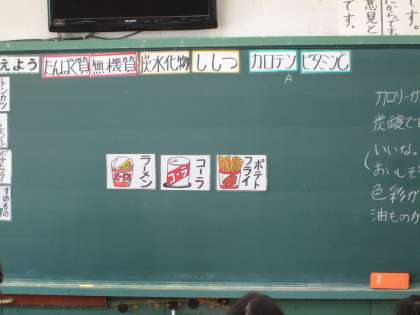 えよう
たんぱく質
無機質
炭水化物
ししつ
カロテン
A
ビタミンC
トンカツ
すのもの
ラーメン
コーラ
コーラ
ポテト
フライ
カロリーが
炭酸で
いいな。
おいしそ
色彩が
油ものが
です。
意見と